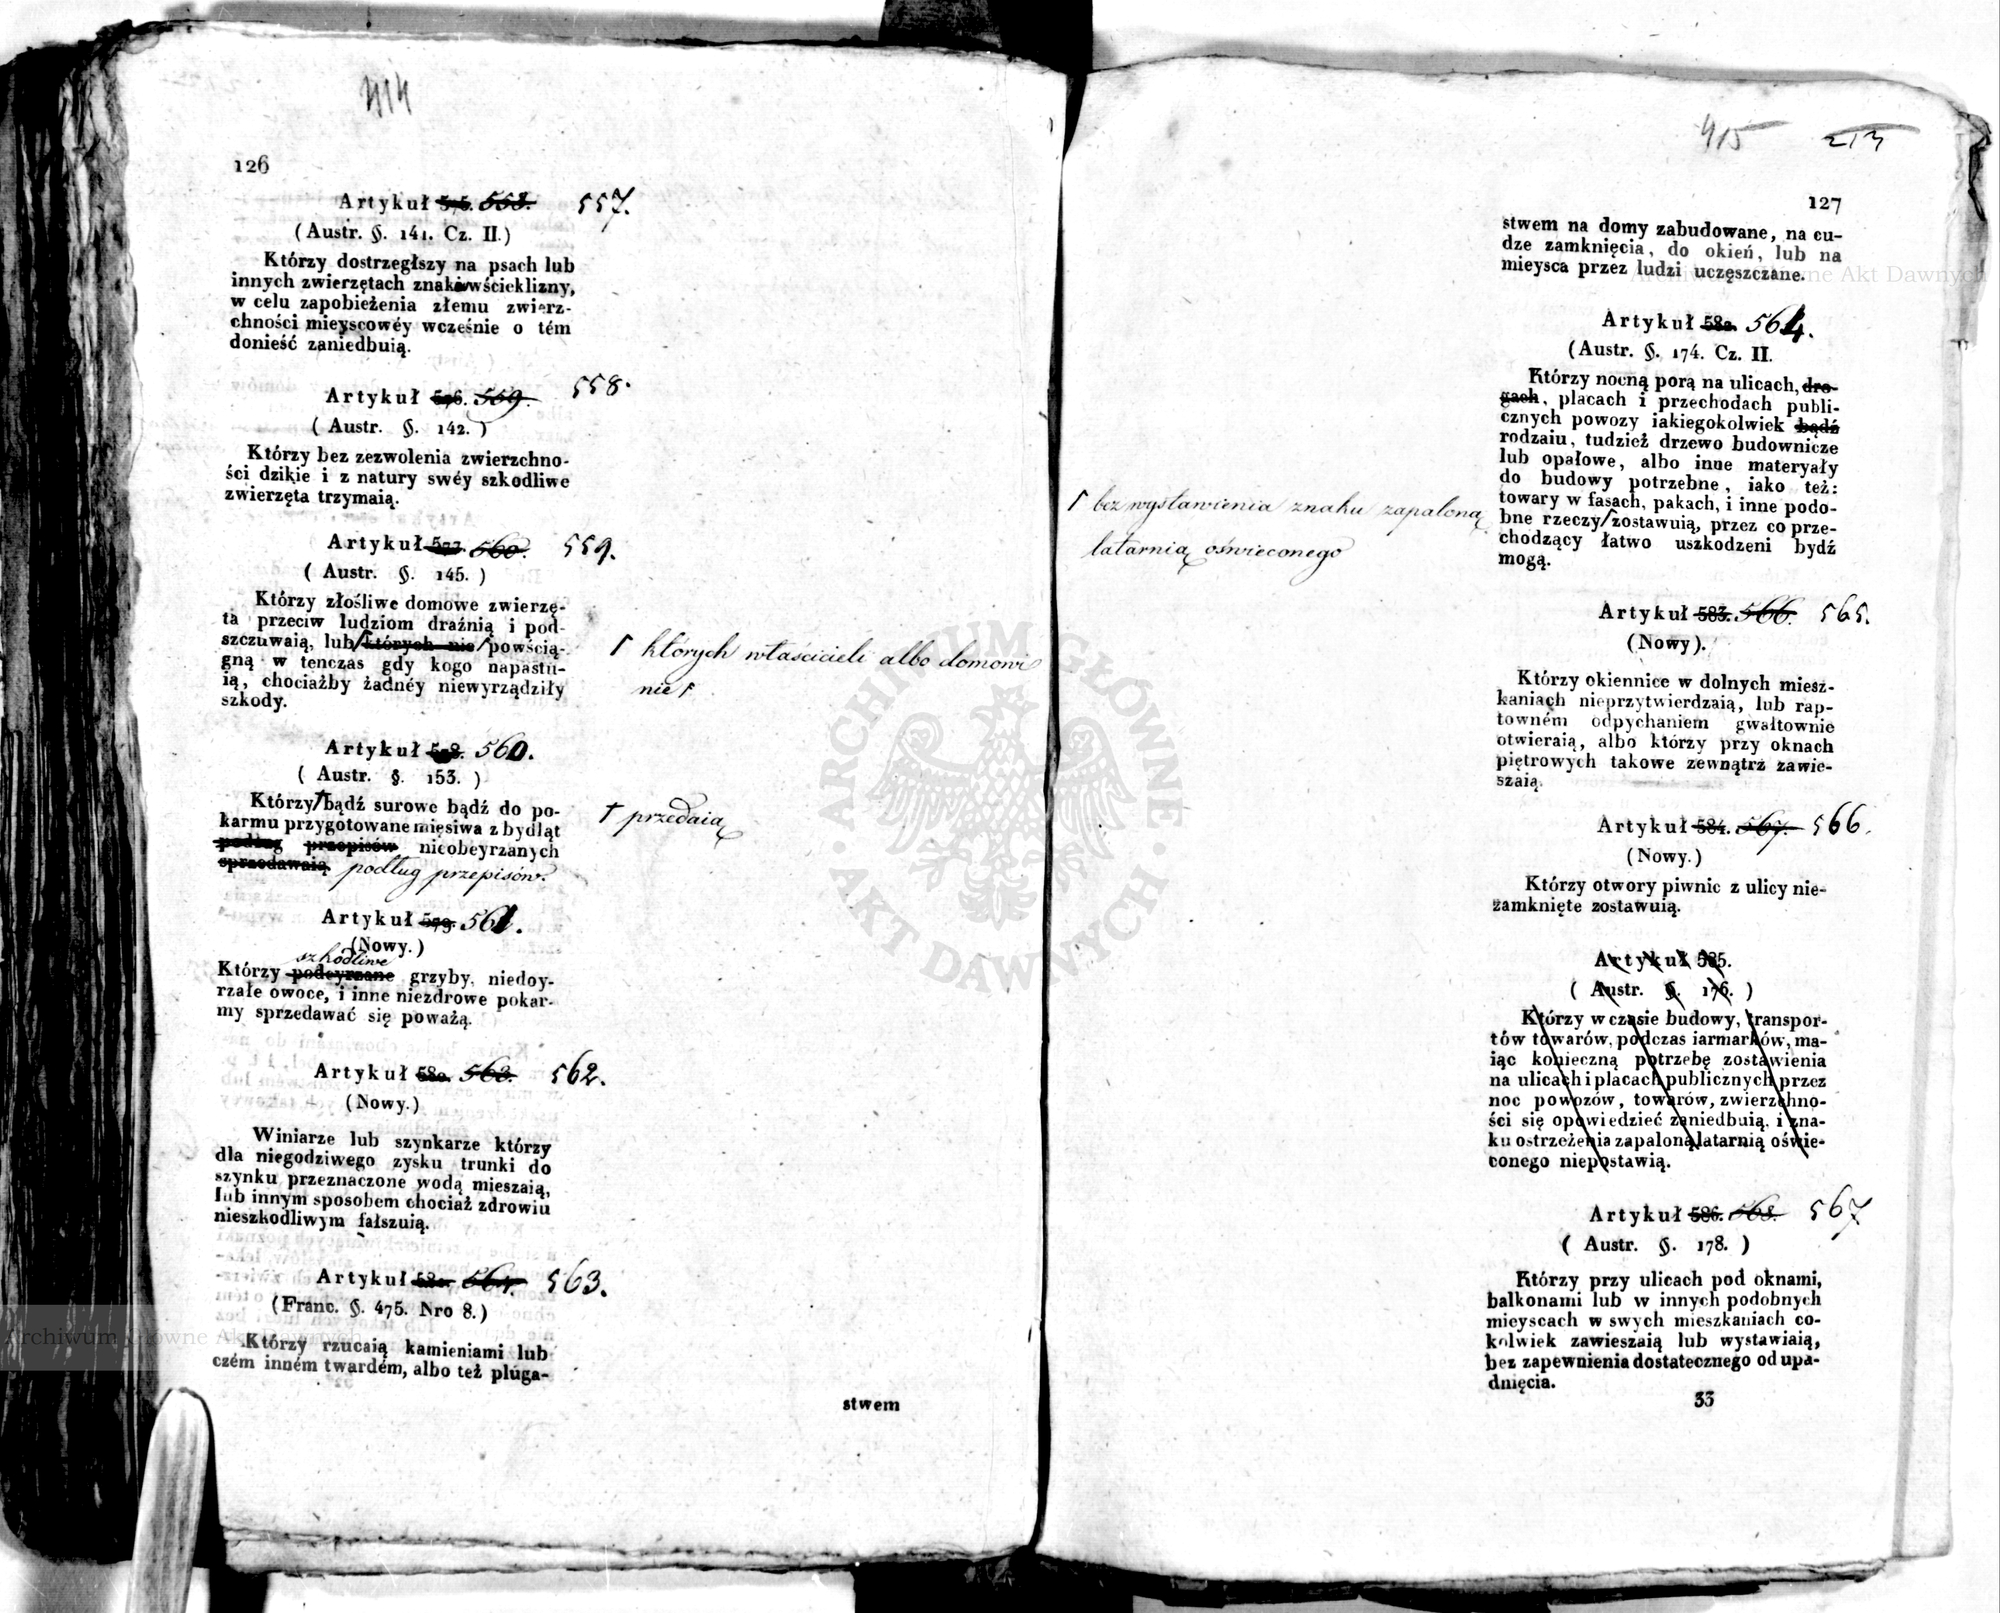 414
126
Artykuł 575. 558. 557.
(Austr. §. 141. Cz. II.)
Którzy dostrzegłszy na psach lub
innych zwierzętach znaki wścieklizny,
w celu zapobieżenia złemu zwierz-
chności mieyscowéy wcześnie o tém
donieść zaniedbuią.
Artykuł 576. 559. 558.
( Austr. §. 142. )
Którzy bez zezwolenia zwierzchno-
ści dzikie i z natury swéy szkodliwe
zwierzęta trzymaią.
Artykuł 577. 560. 559.
( Austr. §. 145. )
Którzy złośliwe domowe zwierzę-
ta przeciw ludziom draźnią i pod-
szczuwaią, lub których nie powścią-
gną w tenczas gdy kogo napastu-
ią, chociażby żadnéy niewyrządziły
szkody.
których właścicieli albo domowi
nie
Artykuł 578. 560.
( Austr. §. 153. )
Którzy bądź surowe bądź do po-
karmu przygotowane mięsiwa z bydląt
podług przepisów nieobeyrzanych
sprzedawaią. podług przepisów.
przedaią
Artykuł 579. 561.
(Nowy.)
szkodliwe
Którzy podeyrzane grzyby, niedoy-
rzałe owoce, i inne niezdrowe pokar-
my sprzedawać się poważą.
Artykuł 580. 563. 562.
(Nowy.)
Winiarze lub szynkarze którzy
dla niegodziwego zysku trunki do
szynku przeznaczone wodą mieszaią,
lub innym sposobem chociaż zdrowiu
nieszkodliwym fałszuią.
Artykuł 581. 564. 563.
(Franc. §. 475. Nro 8.)
Którzy rzucaią kamieniami lub
czém inném twardém, albo też plúga-
stwem
415 213
127
stwem na domy zabudowane, na cu-
dze zamknięcia, do okień, lub na
mieysca przez ludzi uczęszczane.
Artykuł 582. 564.
(Austr. §. 174. Cz. II.
Którzy nocną porą na ulicach, dro-
gach, placach i przechodach publi-
cznych powozy iakiegokolwiek bądź
rodzaiu, tudzież drzewo budownicze
lub opałowe, albo inne materyały
do budowy potrzebne, iako też:
towary w fasach, pakach, i inne podo-
bne rzeczy zostawuią, przez co prze-
chodzący łatwo uszkodzeni bydź
mogą.
bez wystawienia znaku zapaloną
latarnią oświeconego
Artykuł 583. 566. 565.
(Nowy).
Którzy okiennice w dolnych miesz-
kaniach nieprzytwierdzaią, lub rap-
towném odpychaniem gwałtownie
otwieraią, albo którzy przy oknach
piętrowych takowe zewnątrz zawie-
szaią.
Artykuł 584. 567. 566.
(Nowy.)
Którzy otwory piwnic z ulicy nie-
zamknięte zostawuią.
Artykuł 585.
( Austr. §. 176. )
Którzy w czasie budowy, transpor-
tów towarów, podczas iarmarków, ma-
iąc konieczną potrzebę zostawienia
na ulicach i placach publicznych przez
noc powozów, towarów, zwierzchno-
ści się opowiedzieć zaniedbuią, i zna-
ku ostrzeżenia zapaloną latarnią oświe-
conego niepostawią.
Artykuł 586. 568. 567
( Austr. §. 178. )
Którzy przy ulicach pod oknami,
balkonami lub w innych podobnych
mieyscach w swych mieszkaniach co-
kolwiek zawieszaią lub wystawiaią,
bez zapewnienia dostatecznego od upa-
dnięcia.
33
ARCHIWUM GŁÓWNE
AKT DAWNYCH
Archiwum Główne Akt Dawnych
Archiwum Główne Akt Dawnych